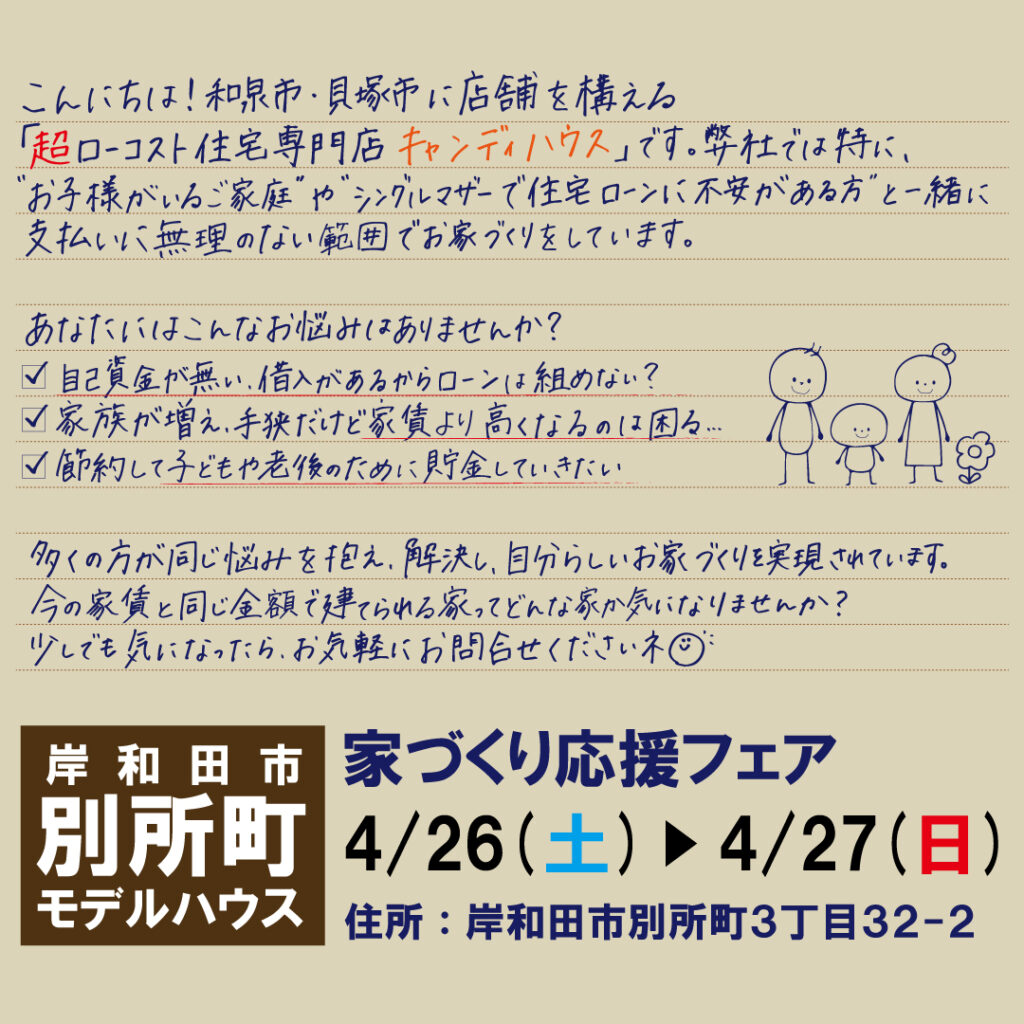 こんにちは!和泉市・貝塚市に店舗を構える
「超ローコスト住宅専門店 キャンディハウス」です。弊社では特に、
"お子様がいるご家庭"や"シングルマザーで住宅ローンに不安がある方"と一緒に
支払いに無理のない範囲でお家づくりをしています。
あなたにはこんなお悩みはありませんか?
☑ 自己資金が無い、借入があるからローンは組めない?
☑ 家族が増え、手狭だけど家賃より高くなるのは困る…
☑ 節約して子どもや老後のために貯金していきたい
多くの方が同じ悩みを抱え、解決し、自分らしいお家づくりを実現されています。
今の家賃と同じ金額で建てられる家ってどんな家か気になりませんか?
少しでも気になったら、お気軽にお問合せくださいネ
岸和田市
別所町
モデルハウス
家づくり応援フェア
4/26(土)▶4/27(日)
住所:岸和田市別所町3丁目32-2